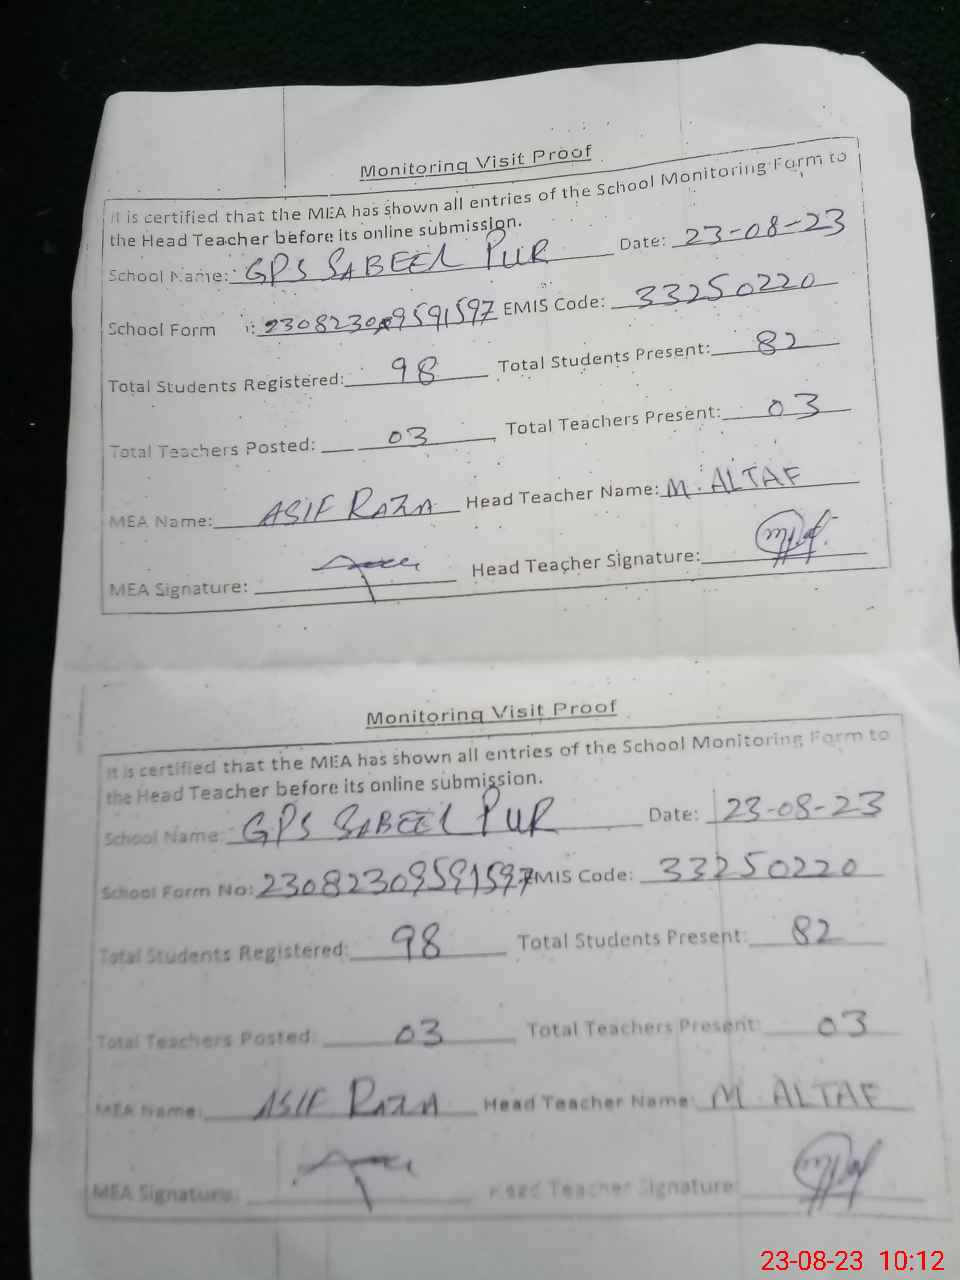 Monitoring Visit Proof
It is certified that the MEA has shown all entries of the School Monitoring Form to
the Head Teacher before its online submission.
School Name: GPS SABEEL PUR Date: 23-08-23
School Form : 23082309591597 EMIS Code: 33250220
Total Students Registered: 98 Total Students Present: 82
Total Teachers Posted: 03 Total Teachers Present: 03
MEA Name: ASIF RAZA Head Teacher Name: M. ALTAF
MEA Signature: Head Teacher Signature:
Monitoring Visit Proof
It is certified that the MEA has shown all entries of the School Monitoring Form to
the Head Teacher before its online submission.
School Name: GPS SABEEL PUR Date: 23-08-23
School Form No: 23082309591597 EMIS Code: 33250220
Total Students Registered: 98 Total Students Present: 82
Total Teachers Posted: 03 Total Teachers Present: 03
MEA Name: ASIF RAZA Head Teacher Name: M. ALTAF
MEA Signature: Head Teacher Signature:
23-08-23 10:12